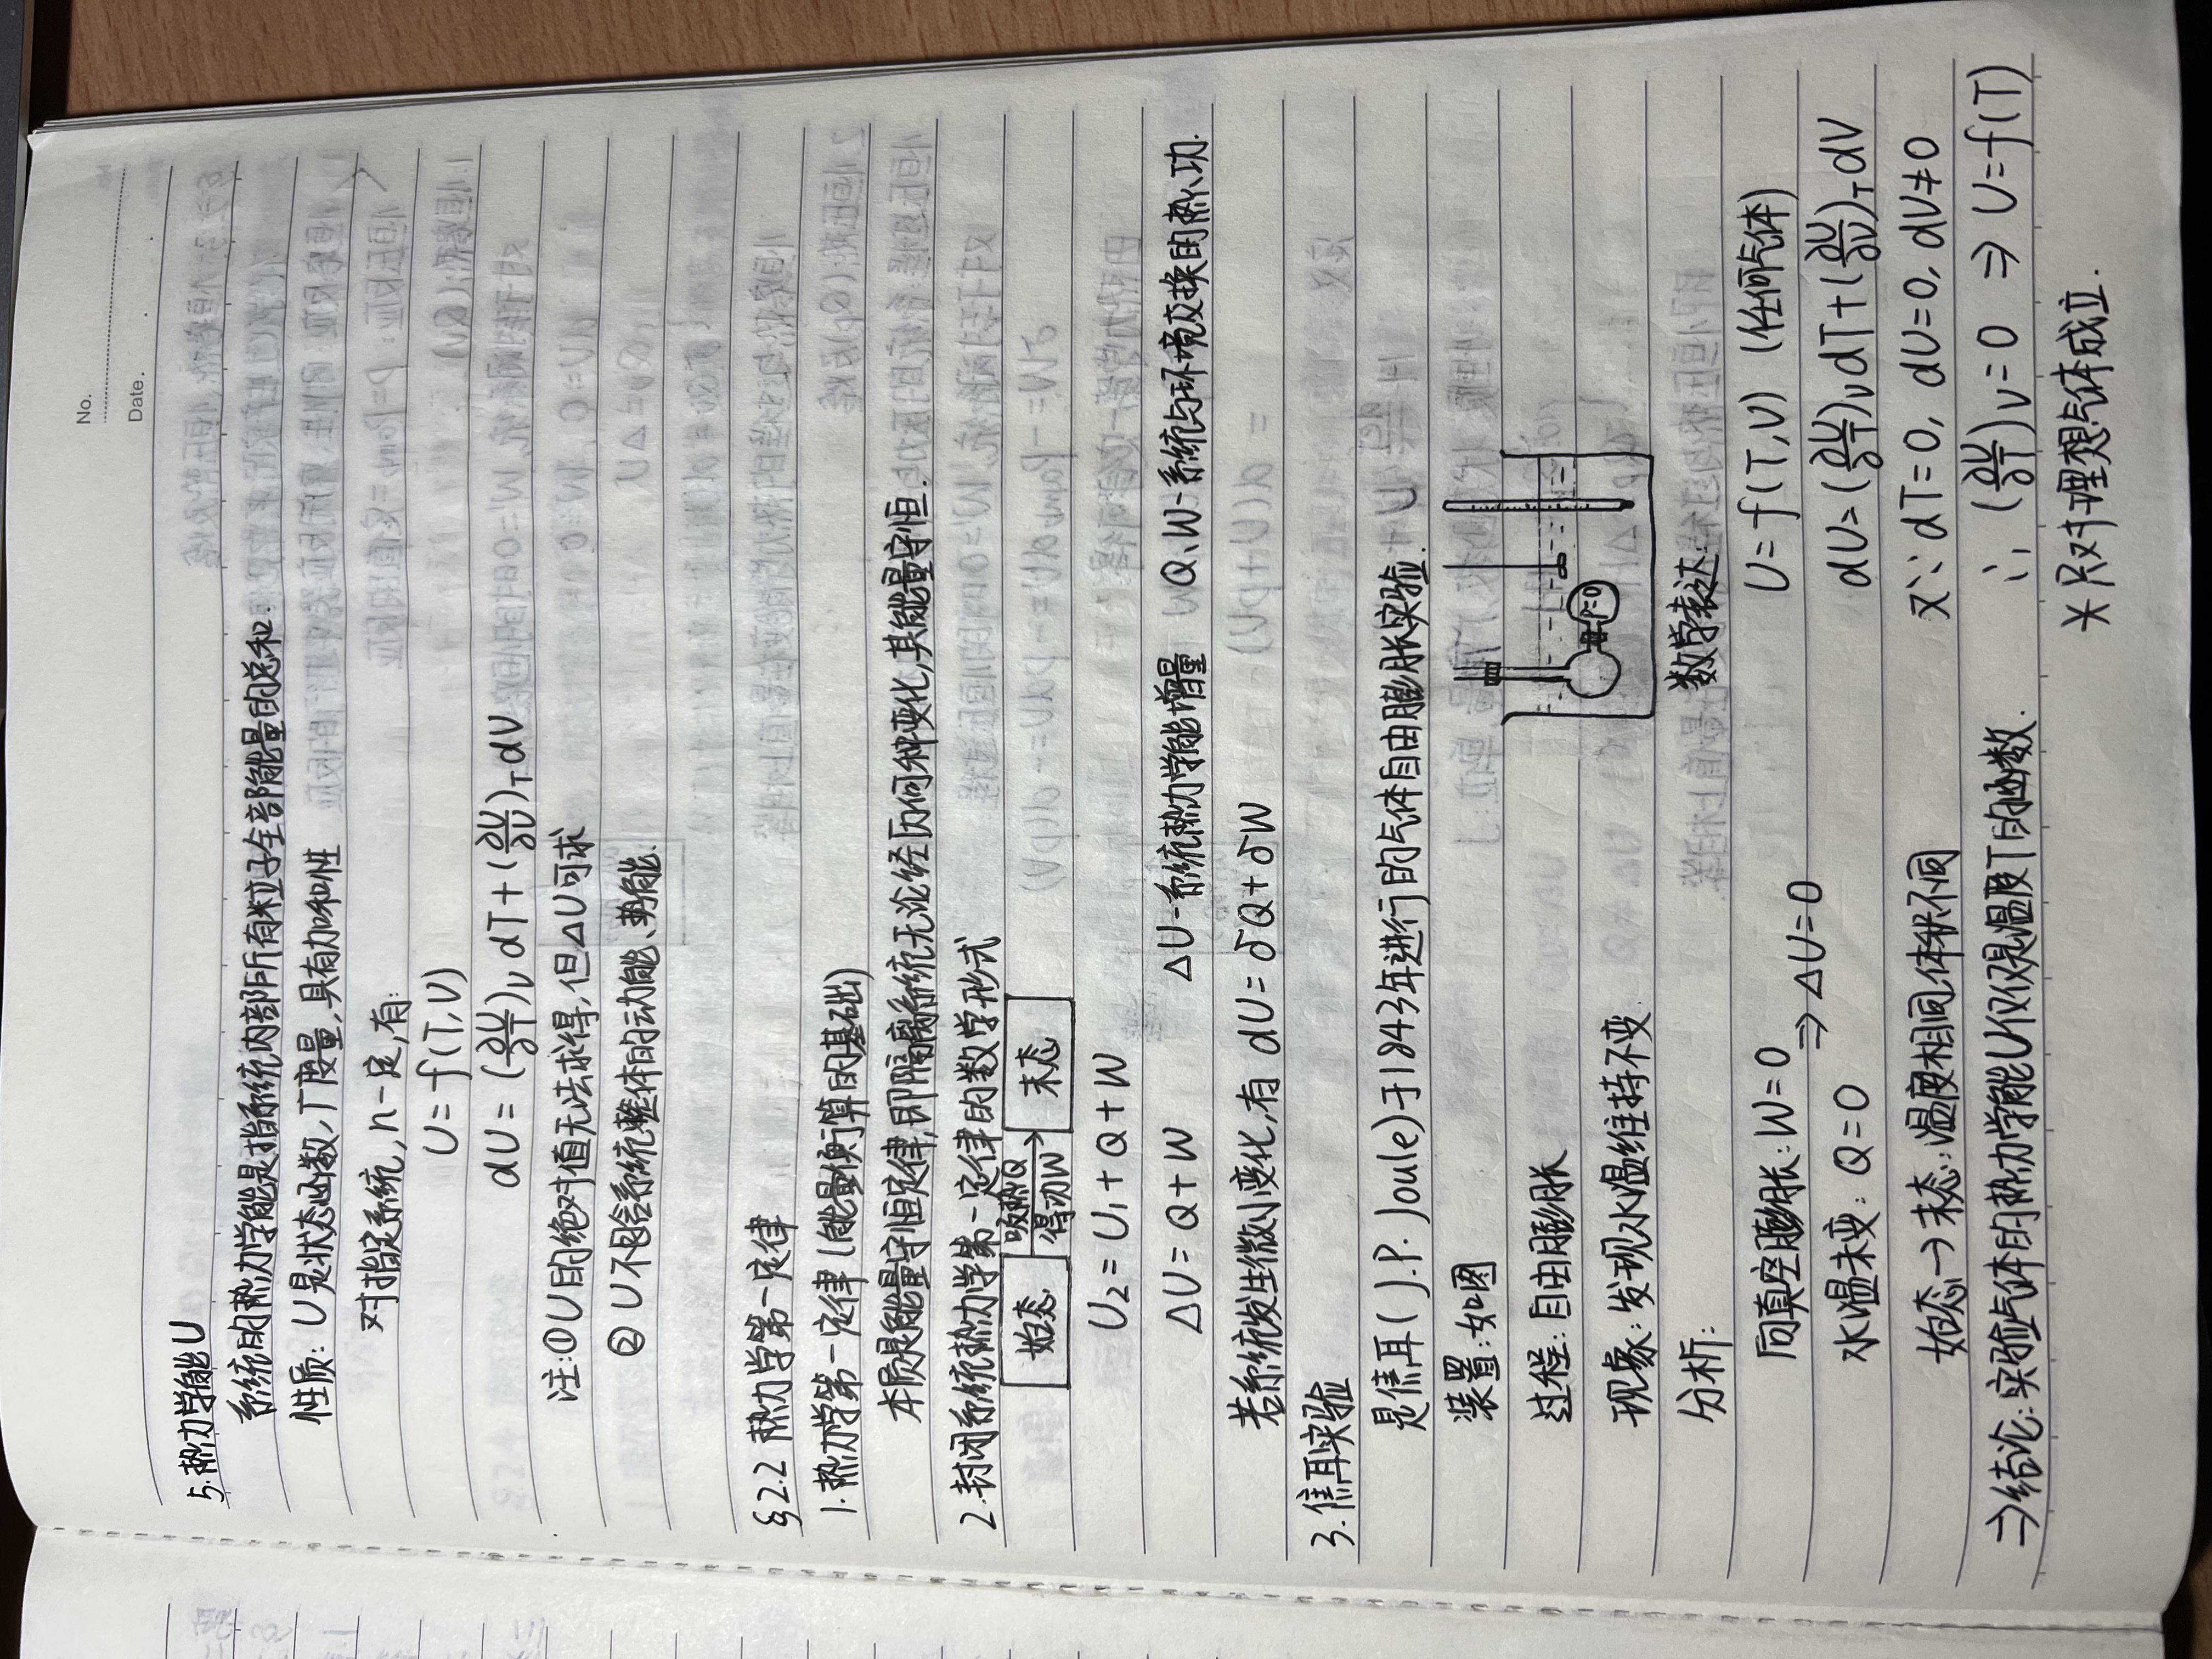 No.
Date.
5.热力学能U
系统的热力学能是指系统内部所有粒子全部能量的总和.
性质: U是状态函数,广度量,具有加和性
对指定系统,n一定,有:
U=f(T,V)
dU=(∂U/∂T)_V dT+(∂U/∂V)_T dV
注:①U的绝对值无法求得,但ΔU可求
② U不包含系统整体的动能、势能.
§2.2 热力学第一定律
1.热力学第一定律(能量衡算的基础)
本质是能量守恒定律,即隔离系统无论经历何种变化,其能量守恒.
2.封闭系统热力学第一定律的数学形式
始态 吸热Q 得功W → 末态
U₂=U₁+Q+W
ΔU=Q+W ΔU-系统热力学能增量 Q、W-系统与环境交换的热、功.
若系统发生微小变化,有 dU=δQ+δW
3.焦耳实验
是焦耳(J.P. Joule)于1843年进行的气体自由膨胀实验.
装置:如图
过程:自由膨胀
P=0
现象:发现水温维持不变.
分析:
向真空膨胀:W=0
⇒ΔU=0
水温未变: Q=0
始态→末态:温度相同,体积不同
⇒结论:实验气体的热力学能U仅仅是温度T的函数.
数学表达:
U=f(T,V) (任何气体)
dU=(∂U/∂T)_V dT+(∂U/∂V)_T dV
又∵ dT=0, dU=0, dV≠0
∴ (∂U/∂T)_V=0 ⇒ U=f(T)
*只对理想气体成立.